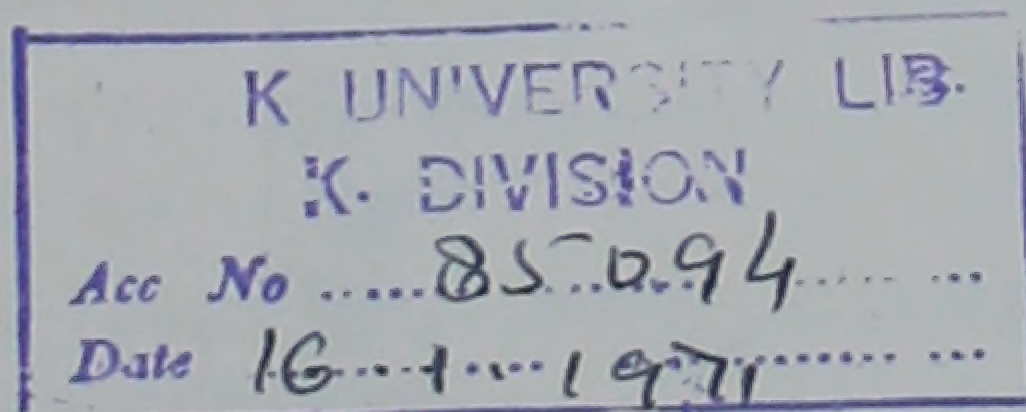 K UNIVERSITY LIB.
K. DIVISION
Acc No .....85094..... ...
Date 16...1...1971......... ...